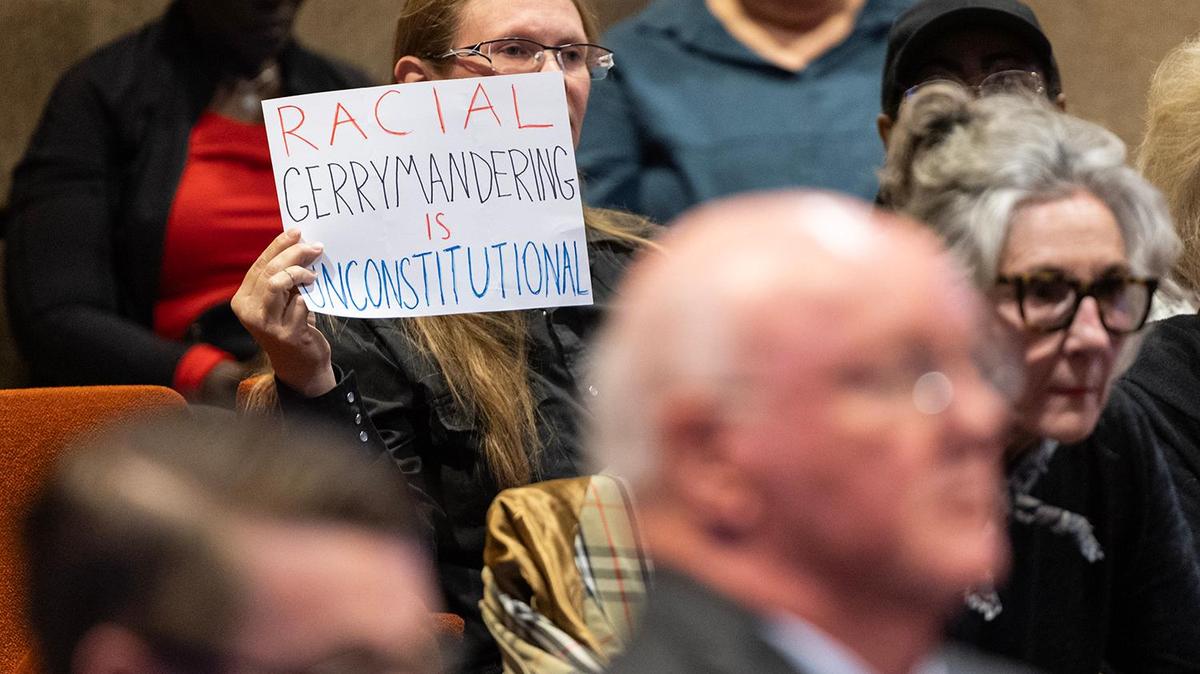 RACIAL
GERRYMANDERING
IS
UNCONSTITUTIONAL